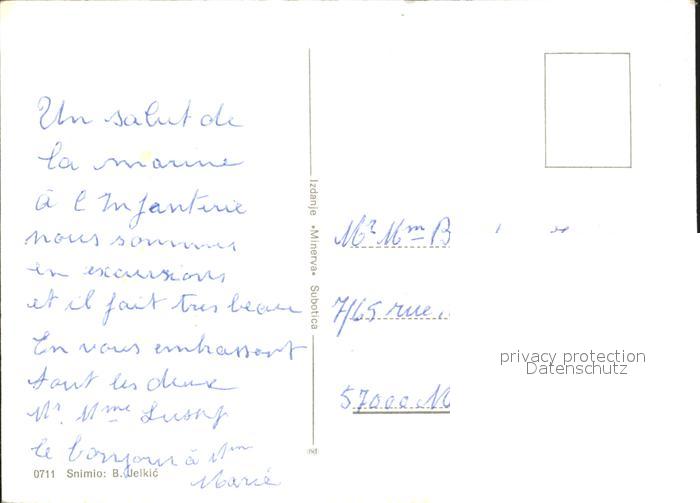 Un salut de
la marine
à l'Infanterie
nous sommes
en excursions
et il fait tres beau
En vous embrassent
tout les deux
Mr. Mme
le bonjour à Mm
Marie
0711 Snimio: B. Jelkić
Izdanje «Minerva» Subotica
Mr Mm B
7/65 rue
57000 M
privacy protection
Datenschutz